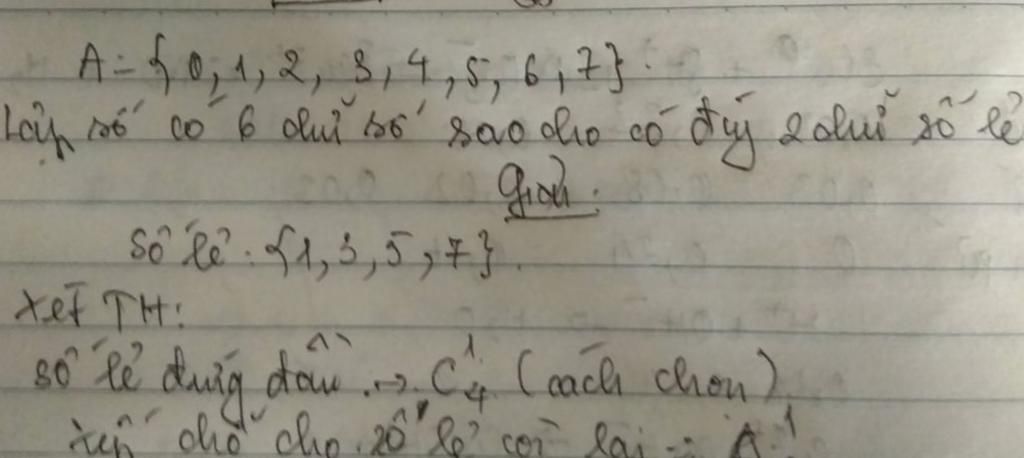 A = {0, 1, 2, 3, 4, 5, 6, 7}.
Lập số có 6 chữ số sao cho có đúng 2 chữ số lẻ
Giải:
Số lẻ: {1, 3, 5, 7}.
Xét TH:
số lẻ đứng đầu → C₄¹ (cách chọn)
chỗ cho số lẻ còn lại = A¹